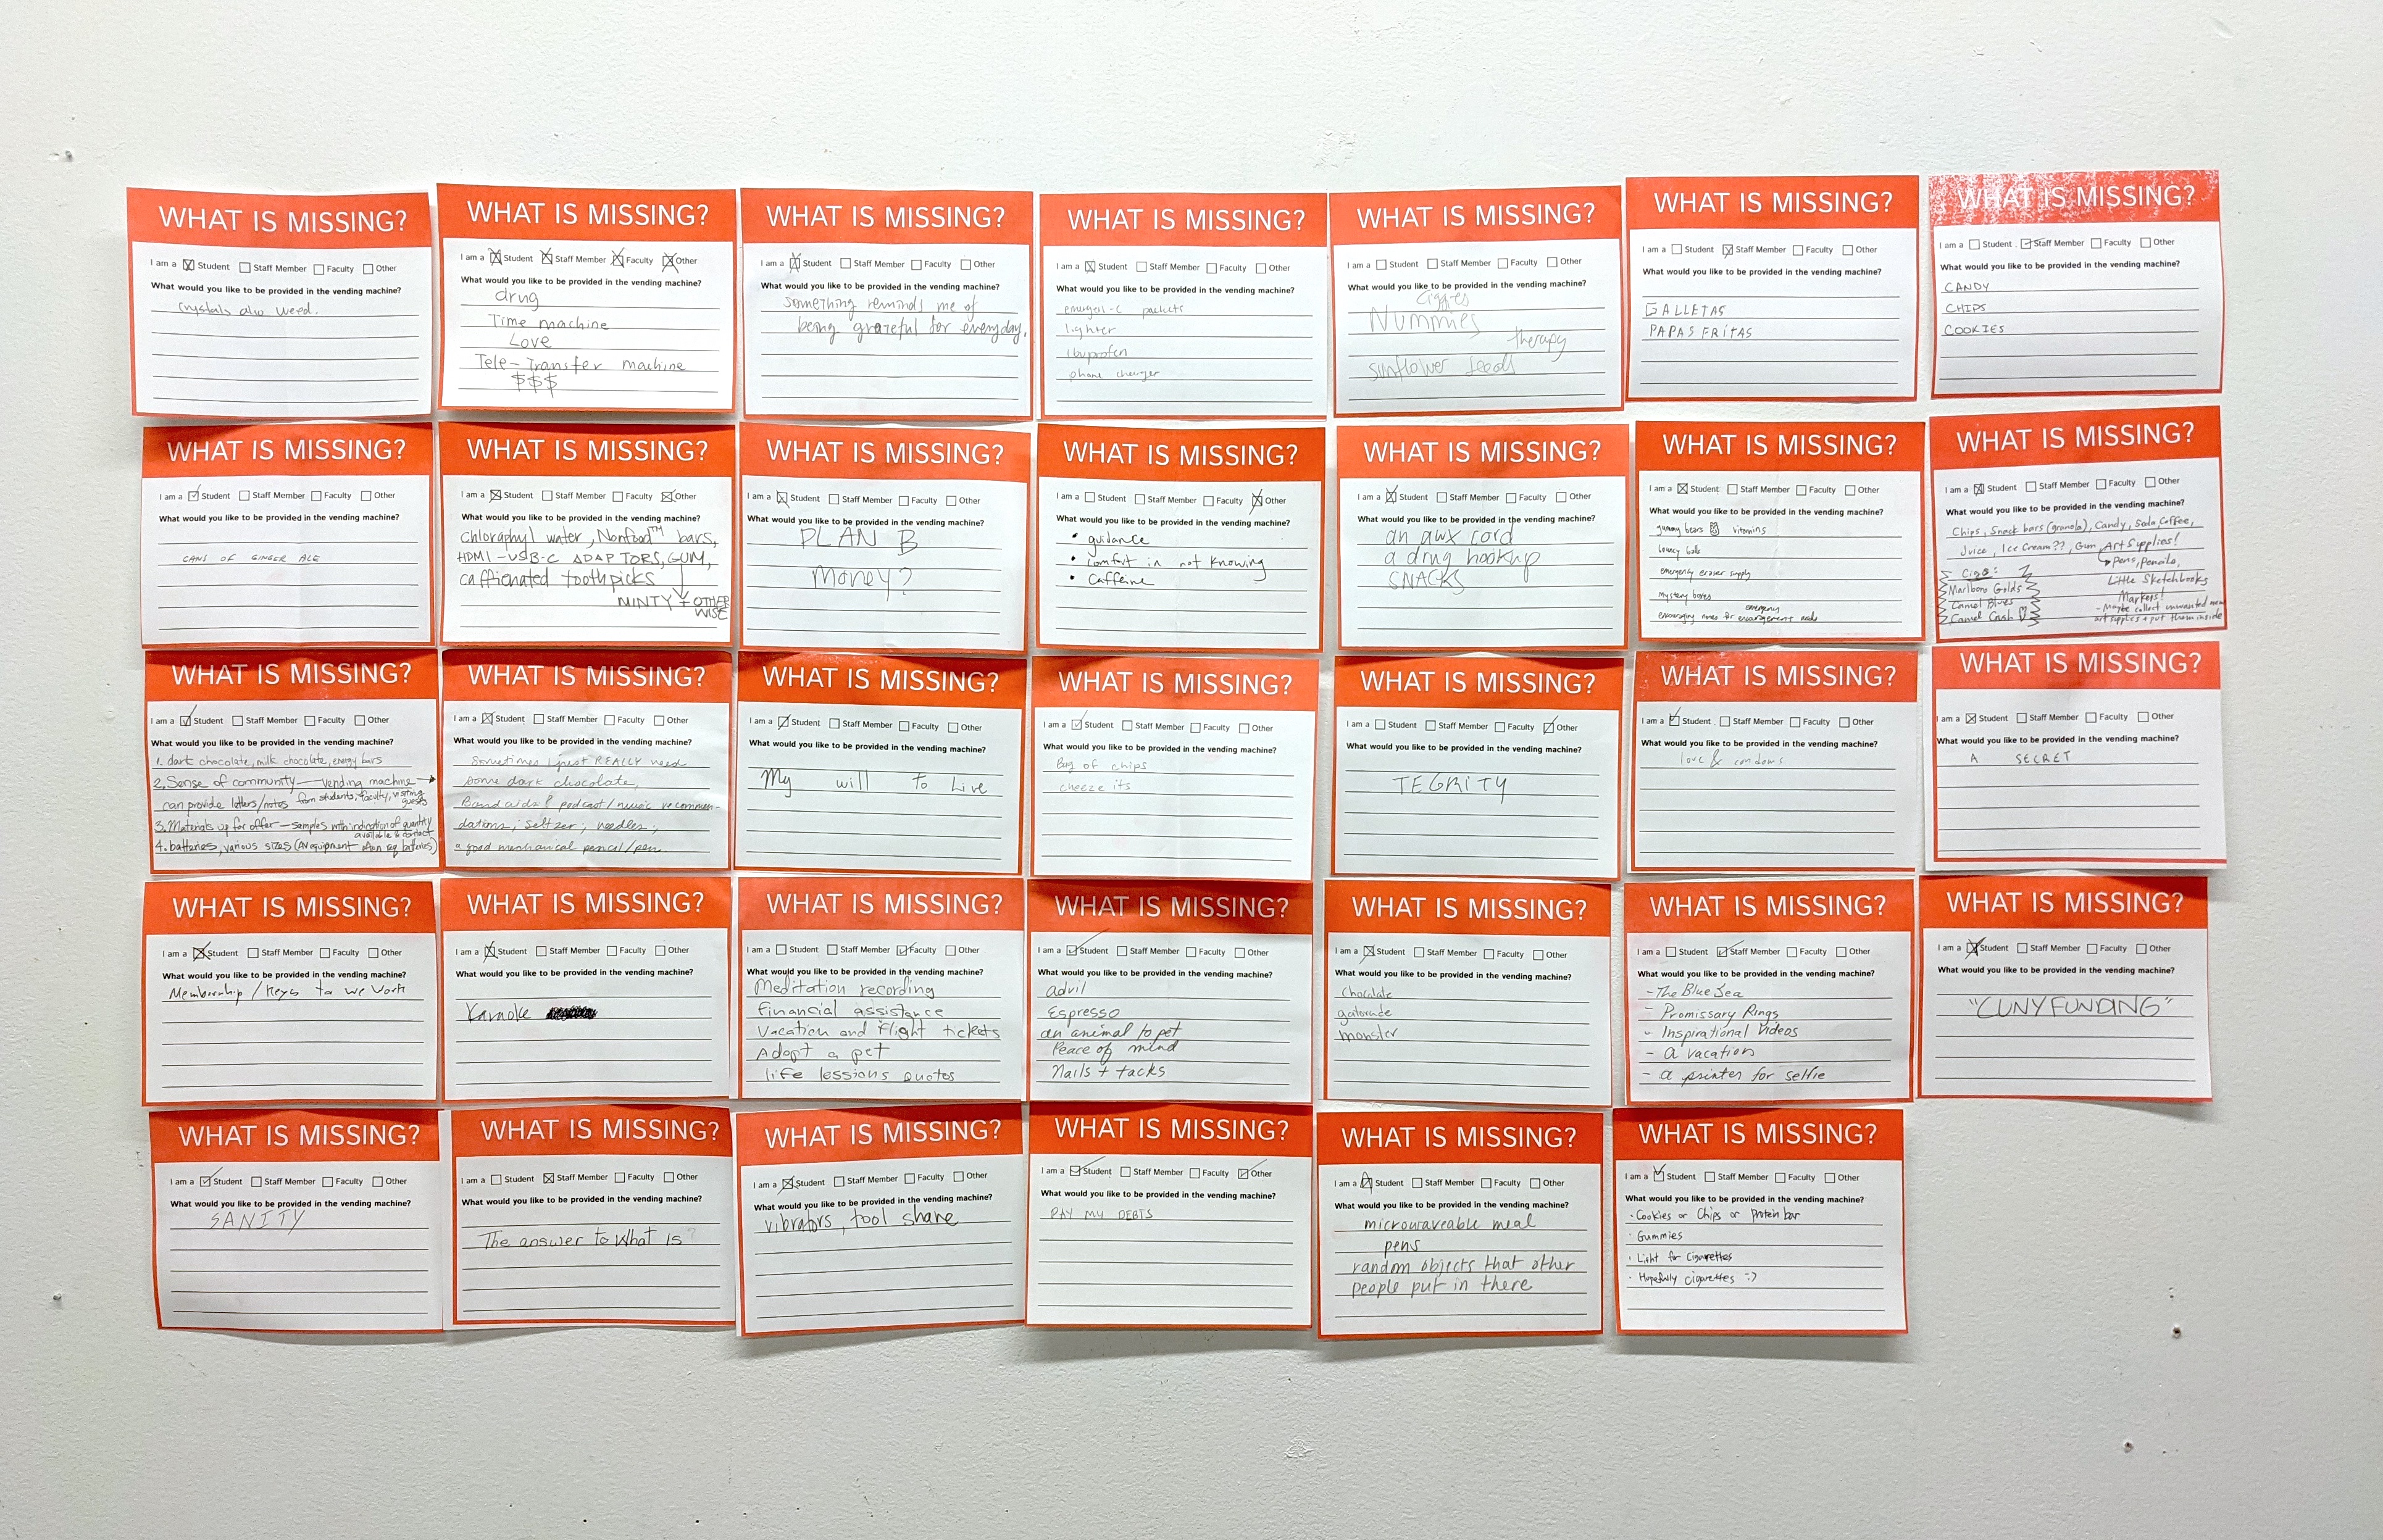 WHAT IS MISSING?
I am a Student Staff Member Faculty Other
What would you like to be provided in the vending machine?
crystals also weed.
WHAT IS MISSING?
I am a Student Staff Member Faculty Other
What would you like to be provided in the vending machine?
drug
Time machine
Love
Tele-Transfer machine
$$$
WHAT IS MISSING?
I am a Student Staff Member Faculty Other
What would you like to be provided in the vending machine?
something reminds me of
being grateful for everyday.
WHAT IS MISSING?
I am a Student Staff Member Faculty Other
What would you like to be provided in the vending machine?
emergen-c packets
lighter
ibuprofen
phone charger
WHAT IS MISSING?
I am a Student Staff Member Faculty Other
What would you like to be provided in the vending machine?
Ciggies
Nummies
therapy
sunflower seeds
WHAT IS MISSING?
I am a Student Staff Member Faculty Other
What would you like to be provided in the vending machine?
GALLETAS
PAPAS FRITAS
WHAT IS MISSING?
I am a Student Staff Member Faculty Other
What would you like to be provided in the vending machine?
CANDY
CHIPS
COOKIES
WHAT IS MISSING?
I am a Student Staff Member Faculty Other
What would you like to be provided in the vending machine?
CANS OF GINGER ALE
WHAT IS MISSING?
I am a Student Staff Member Faculty Other
What would you like to be provided in the vending machine?
chloraphyl water, Nonfood™ bars,
HDMI-USB-C ADAPTORS, GUM,
caffienated toothpicks
MINTY + OTHER
WISE
WHAT IS MISSING?
I am a Student Staff Member Faculty Other
What would you like to be provided in the vending machine?
PLAN B
Money?
WHAT IS MISSING?
I am a Student Staff Member Faculty Other
What would you like to be provided in the vending machine?
• guidance
• comfort in not knowing
• caffeine
WHAT IS MISSING?
I am a Student Staff Member Faculty Other
What would you like to be provided in the vending machine?
an awx cord
a drug hookup
SNACKS
WHAT IS MISSING?
I am a Student Staff Member Faculty Other
What would you like to be provided in the vending machine?
gummy bears vitamins
bouncy balls
emergency eraser supply
mystery boxes
emergency
encouraging notes for encouragement needs
WHAT IS MISSING?
I am a Student Staff Member Faculty Other
What would you like to be provided in the vending machine?
Chips, Snack bars (granola), Candy, Soda, Coffee,
Juice, Ice Cream??, Gum, Art Supplies!
Pens, Pencils,
Cigs:
Little Sketchbooks
Marlboro Golds
Markers!
Camel Blues
- Maybe collect unwanted
Camel Crush
art supplies + put them inside
WHAT IS MISSING?
I am a Student Staff Member Faculty Other
What would you like to be provided in the vending machine?
1. dark chocolate, milk chocolate, energy bars
2. Sense of community — vending machine →
can provide letters/notes from students, faculty, visiting
guests
3. Materials up for offer — samples with indication of quantity
available & contact
4. batteries, various sizes (AV equipment often req batteries)
WHAT IS MISSING?
I am a Student Staff Member Faculty Other
What would you like to be provided in the vending machine?
Sometimes I just REALLY need
some dark chocolate,
Band aids; podcast/music recommen-
dations; seltzer; needles;
a good mechanical pencil/pen
WHAT IS MISSING?
I am a Student Staff Member Faculty Other
What would you like to be provided in the vending machine?
My will to Live
WHAT IS MISSING?
I am a Student Staff Member Faculty Other
What would you like to be provided in the vending machine?
Bag of chips
cheeze its
WHAT IS MISSING?
I am a Student Staff Member Faculty Other
What would you like to be provided in the vending machine?
TEGRITY
WHAT IS MISSING?
I am a Student Staff Member Faculty Other
What would you like to be provided in the vending machine?
love & condoms
WHAT IS MISSING?
I am a Student Staff Member Faculty Other
What would you like to be provided in the vending machine?
A SECRET
WHAT IS MISSING?
I am a Student Staff Member Faculty Other
What would you like to be provided in the vending machine?
Membership / Keys to we work
WHAT IS MISSING?
I am a Student Staff Member Faculty Other
What would you like to be provided in the vending machine?
Karaoke
WHAT IS MISSING?
I am a Student Staff Member Faculty Other
What would you like to be provided in the vending machine?
Meditation recording
financial assistance
Vacation and flight tickets
Adopt a pet
life lessions quotes
WHAT IS MISSING?
I am a Student Staff Member Faculty Other
What would you like to be provided in the vending machine?
advil
Espresso
an animal to pet
Peace of mind
Nails + tacks
WHAT IS MISSING?
I am a Student Staff Member Faculty Other
What would you like to be provided in the vending machine?
Chocolate
gatorade
monster
WHAT IS MISSING?
I am a Student Staff Member Faculty Other
What would you like to be provided in the vending machine?
- The Blue Sea
- Promissary Rings
- Inspirational Videos
- a vacation
- a printer for selfie
WHAT IS MISSING?
I am a Student Staff Member Faculty Other
What would you like to be provided in the vending machine?
"CUNY FUNDING"
WHAT IS MISSING?
I am a Student Staff Member Faculty Other
What would you like to be provided in the vending machine?
SANITY
WHAT IS MISSING?
I am a Student Staff Member Faculty Other
What would you like to be provided in the vending machine?
The answer to What is?
WHAT IS MISSING?
I am a Student Staff Member Faculty Other
What would you like to be provided in the vending machine?
vibrators, tool share
WHAT IS MISSING?
I am a Student Staff Member Faculty Other
What would you like to be provided in the vending machine?
PAY MY DEBTS
WHAT IS MISSING?
I am a Student Staff Member Faculty Other
What would you like to be provided in the vending machine?
microwaveable meal
pens
random objects that other
people put in there
WHAT IS MISSING?
I am a Student Staff Member Faculty Other
What would you like to be provided in the vending machine?
· Cookies or Chips or protein bar
· Gummies
· Light for cigarettes
· Hopefully cigarettes :)